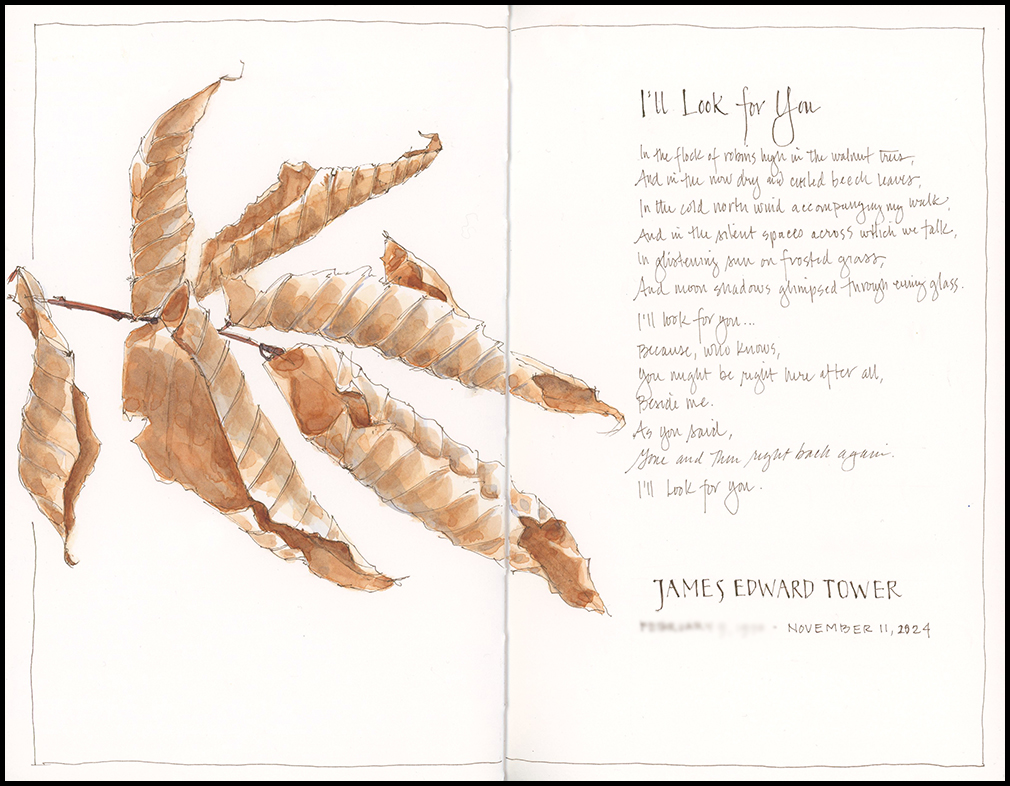 I'll Look for You
In the flock of robins high in the walnut trees,
And in the now dry and curled beech leaves,
In the cold north wind accompanying my walk,
And in the silent spaces across which we talk,
In glistening sun on frosted grass,
And moon shadows glimpsed through evening glass.
I'll look for you...
Because, who knows,
You might be right here after all,
Beside me.
As you said,
Gone and then right back again.
I'll Look for you.
JAMES EDWARD TOWER
- NOVEMBER 11, 2024